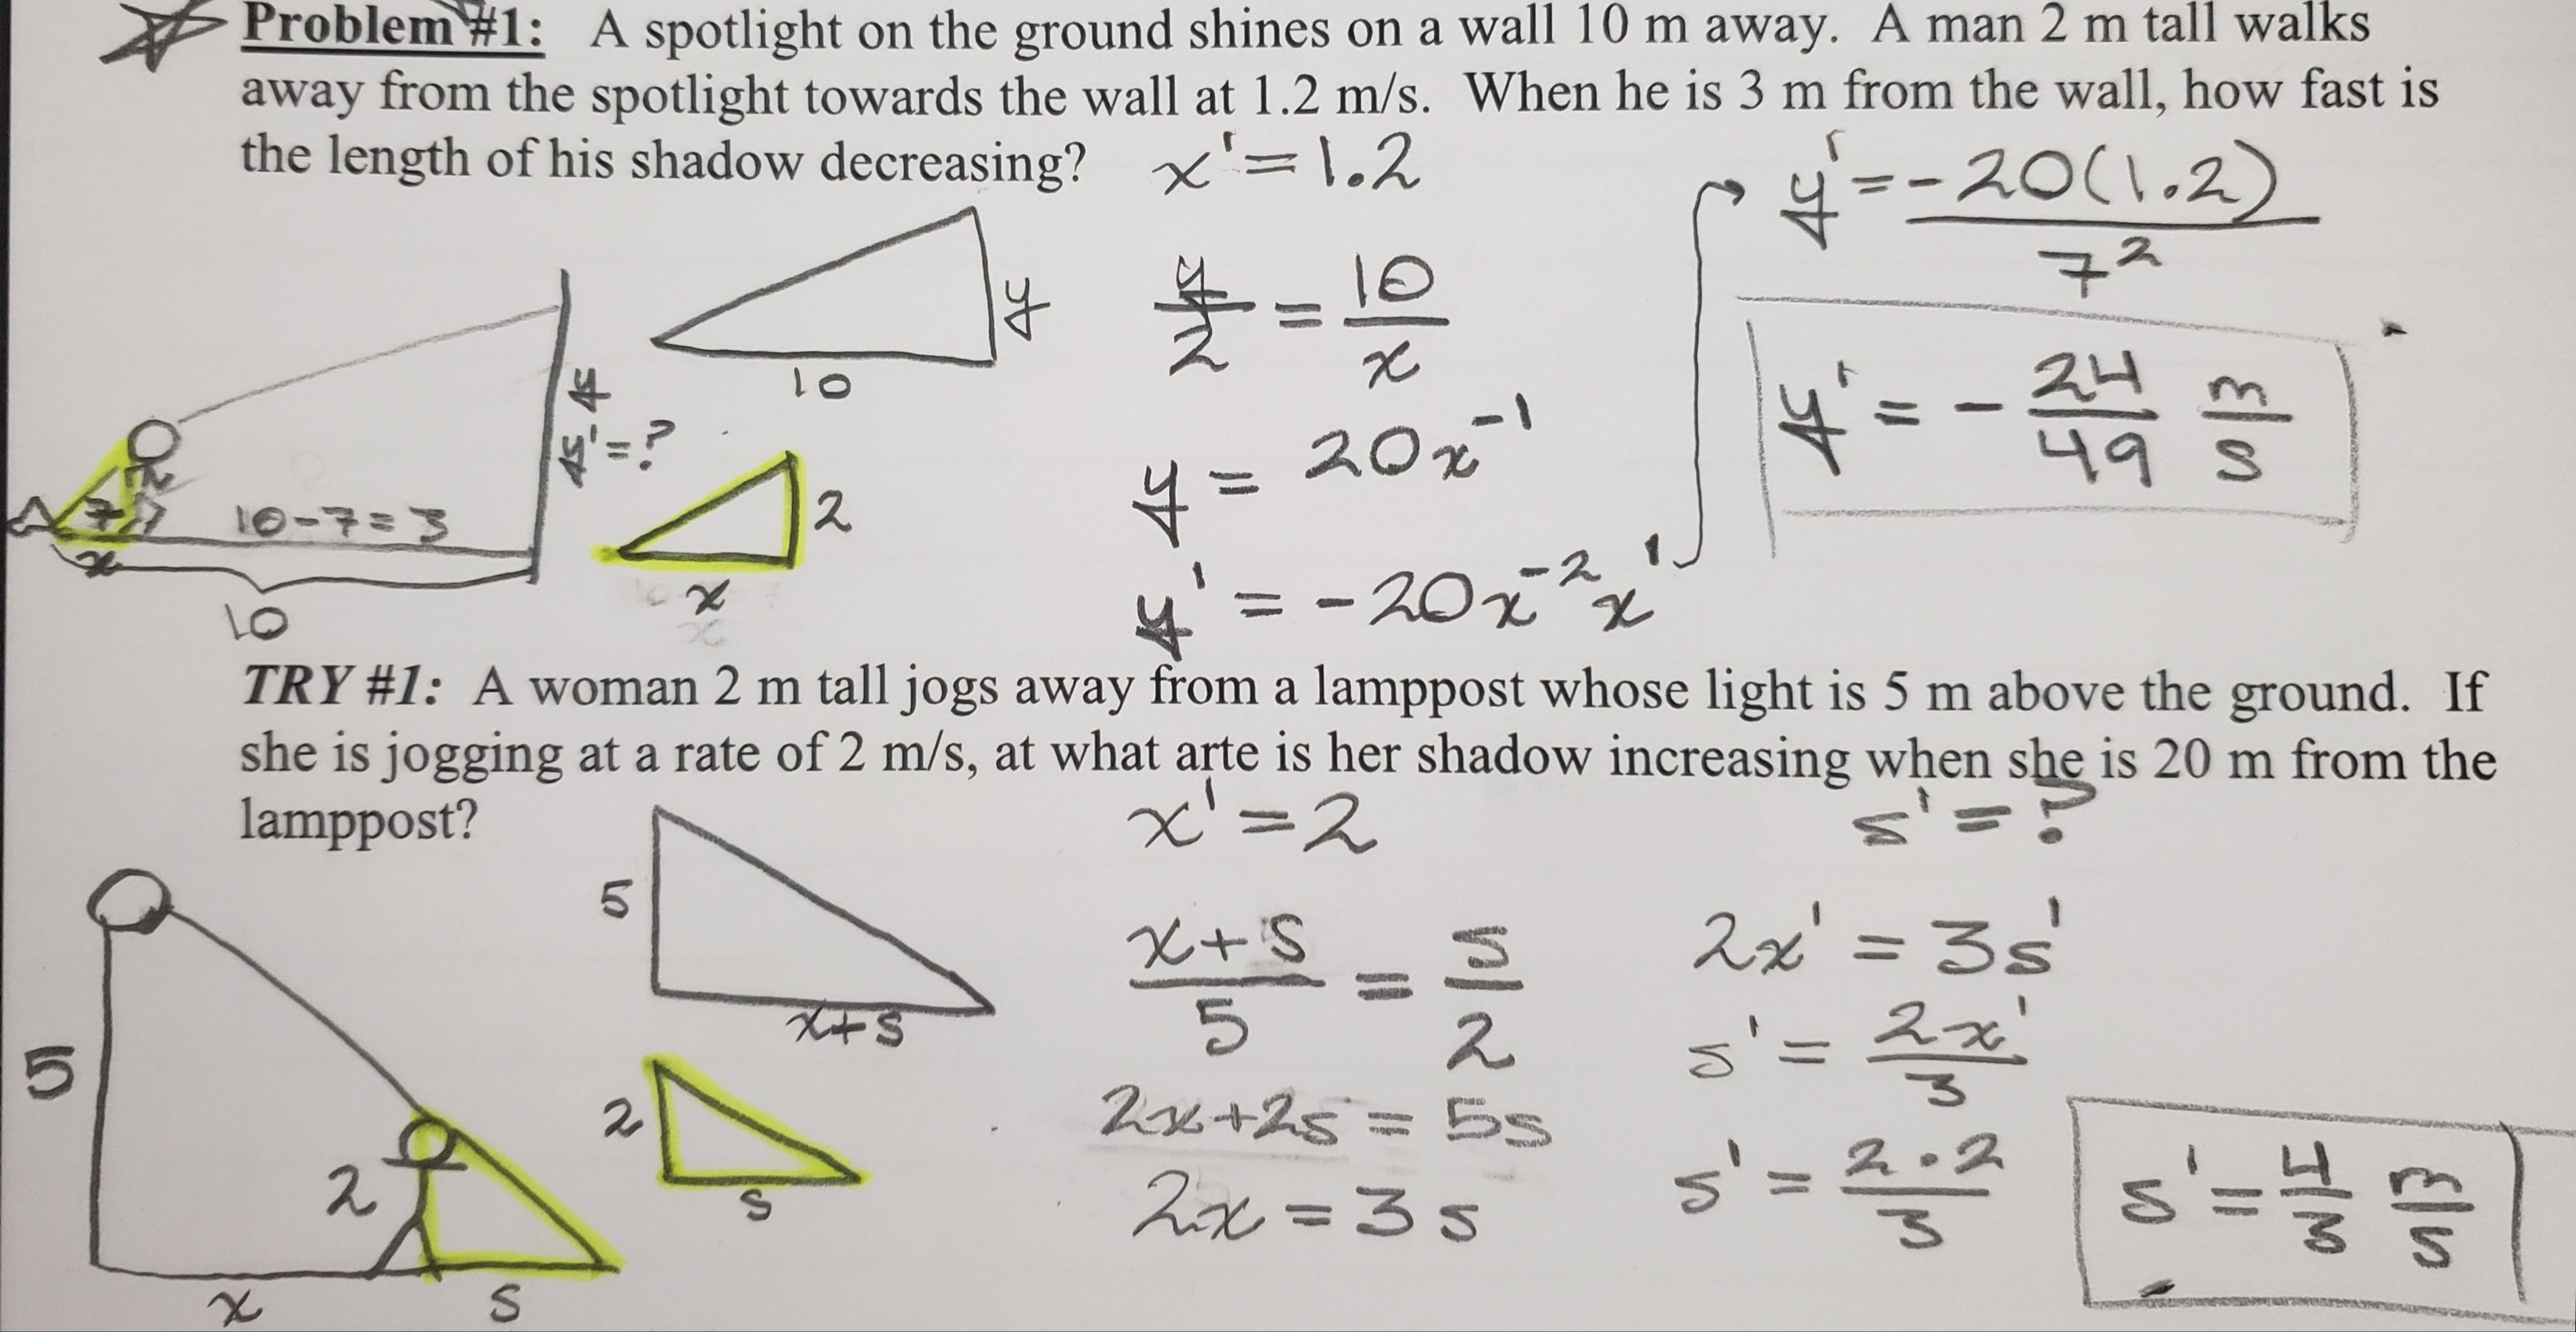 Problem #1: A spotlight on the ground shines on a wall 10 m away. A man 2 m tall walks
away from the spotlight towards the wall at 1.2 m/s. When he is 3 m from the wall, how fast is
the length of his shadow decreasing?
x' = 1.2
y
y' = ?
2
7
10-7=3
x
10
y
10
2
x
y/2 = 10/x
y = 20x⁻¹
y' = -20x⁻²x'
y' = -20(1.2)/7²
y' = - 24/49 m/s
TRY #1: A woman 2 m tall jogs away from a lamppost whose light is 5 m above the ground. If
she is jogging at a rate of 2 m/s, at what arte is her shadow increasing when she is 20 m from the
lamppost?
x' = 2
s' = ?
5
2
x
s
5
x+s
2
s
x+s/5 = s/2
2x+2s = 5s
2x = 3s
2x' = 3s'
s' = 2x'/3
s' = 2·2/3
s' = 4/3 m/s